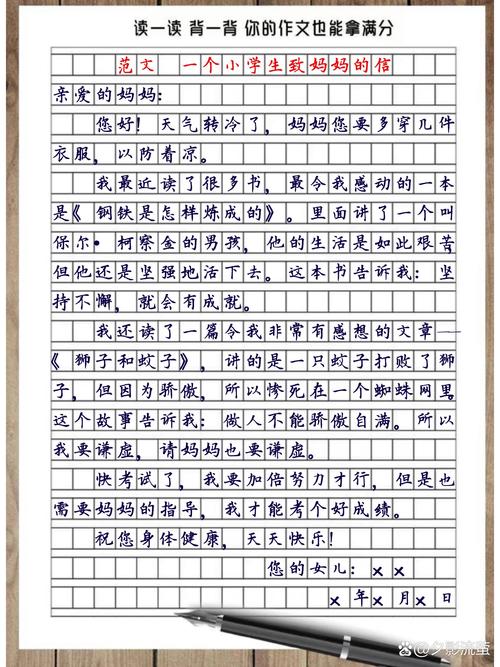 读一读 背一背 你的作文也能拿满分
范文 一个小学生致妈妈的信
亲爱的妈妈：
您好！天气转冷了，妈妈您要多穿几件
衣服，以防着凉。
我最近读了很多书，最令我感动的一本
是《钢铁是怎样炼成的》。里面讲了一个叫
保尔·柯察金的男孩，他的生活是如此艰苦
但他还是坚强地活下去。这本书告诉我：坚
持不懈，就会有成就。
我还读了一篇令我非常有感想的文章——
《狮子和蚊子》，讲的是一只蚊子打败了狮
子，但因为骄傲，所以惨死在一个蜘蛛网里。
这个故事告诉我：做人不能骄傲自满。所以
我要谦虚，请妈妈也要谦虚。
快考试了，我要加倍努力才行，但是也
需要妈妈的指导，我才能考个好成绩。
祝您身体健康，天天快乐！
您的女儿：××
×年×月×日
@夕影流萤